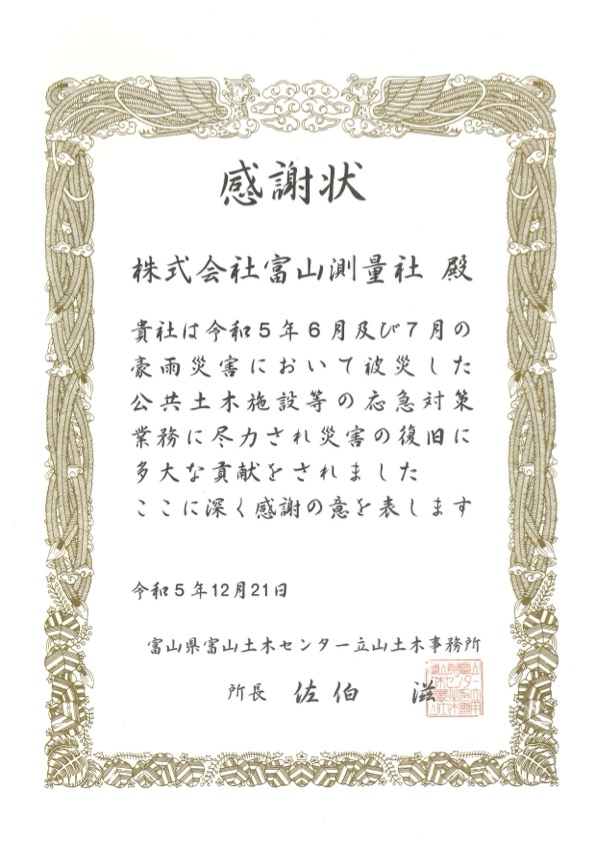 感謝状
株式会社富山測量社 殿
貴社は令和5年6月及び7月の
豪雨災害において被災した
公共土木施設等の応急対策
業務に尽力され災害の復旧に
多大な貢献をされました
ここに深く感謝の意を表します
令和5年12月21日
富山県富山土木センター立山土木事務所
所長 佐伯 滋